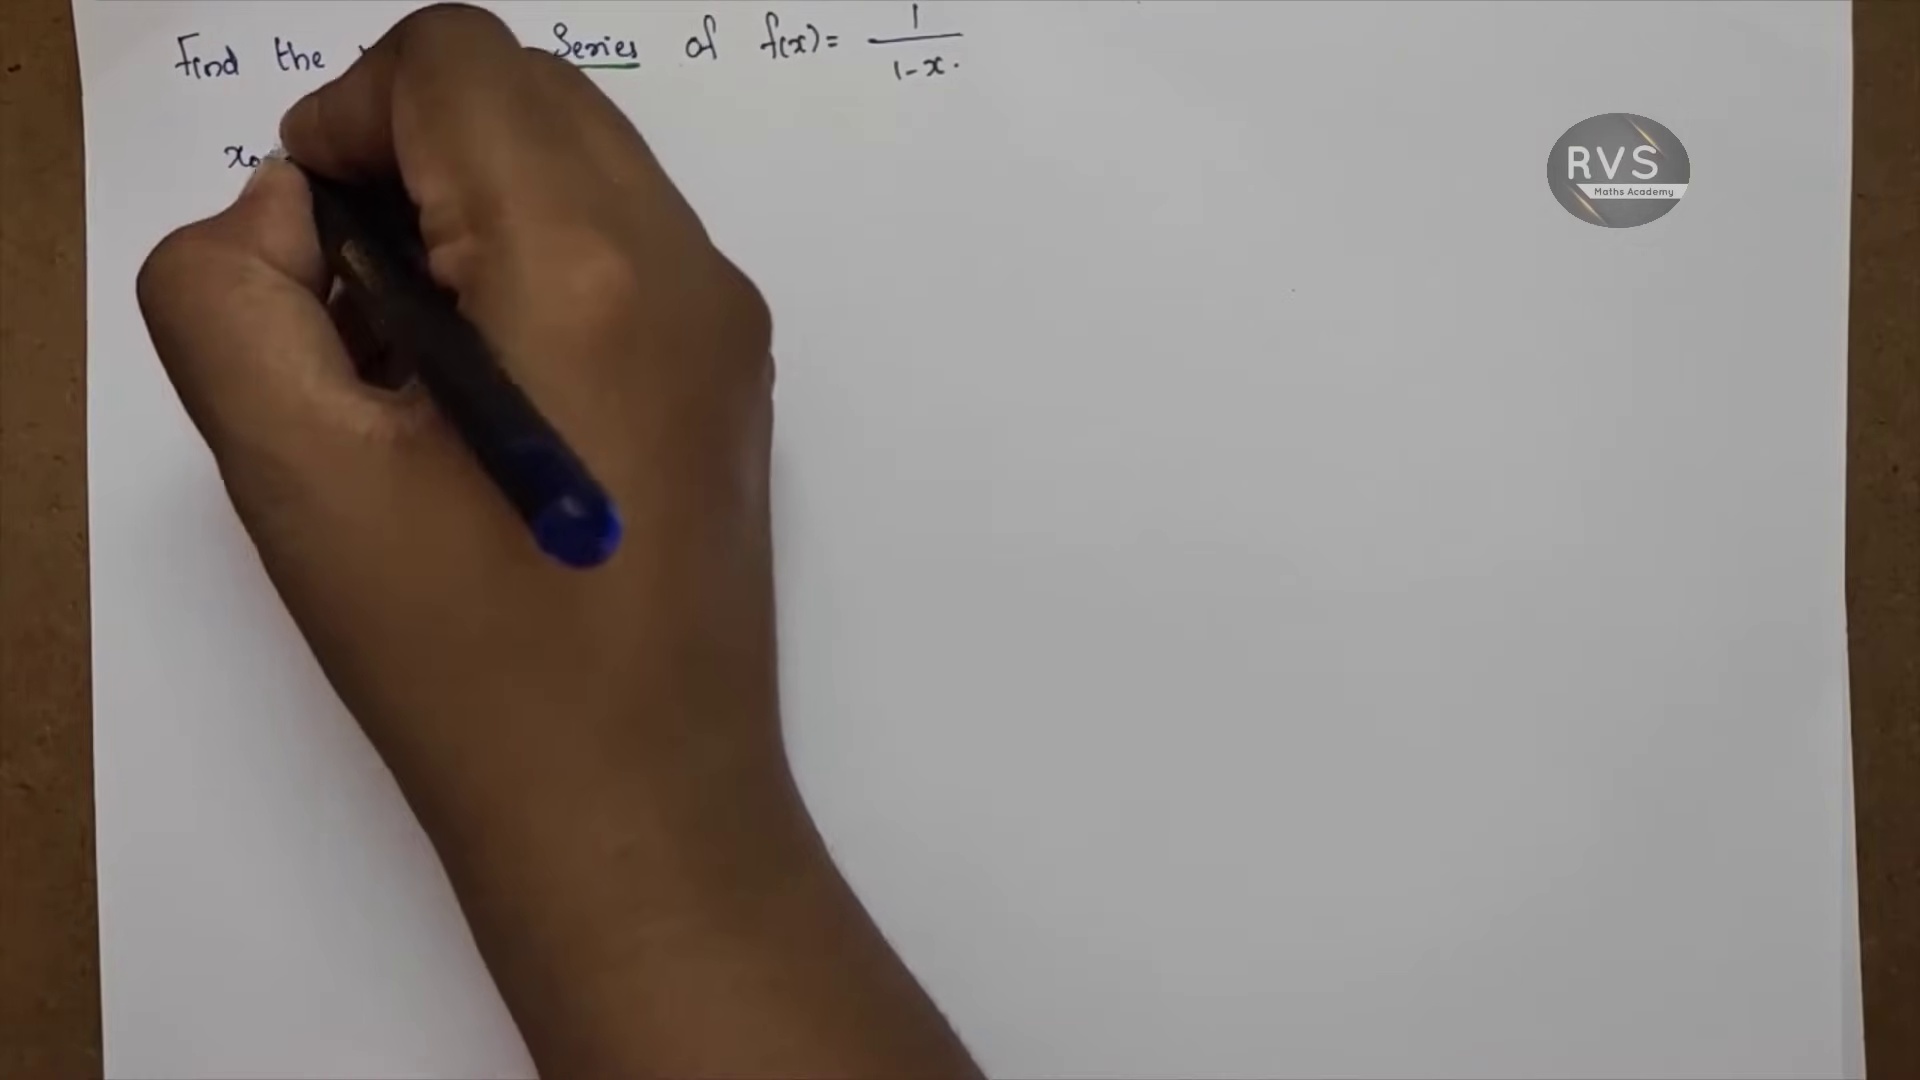 Find the Series of f(x) = 1/1-x.
x₀
RVS
Maths Academy